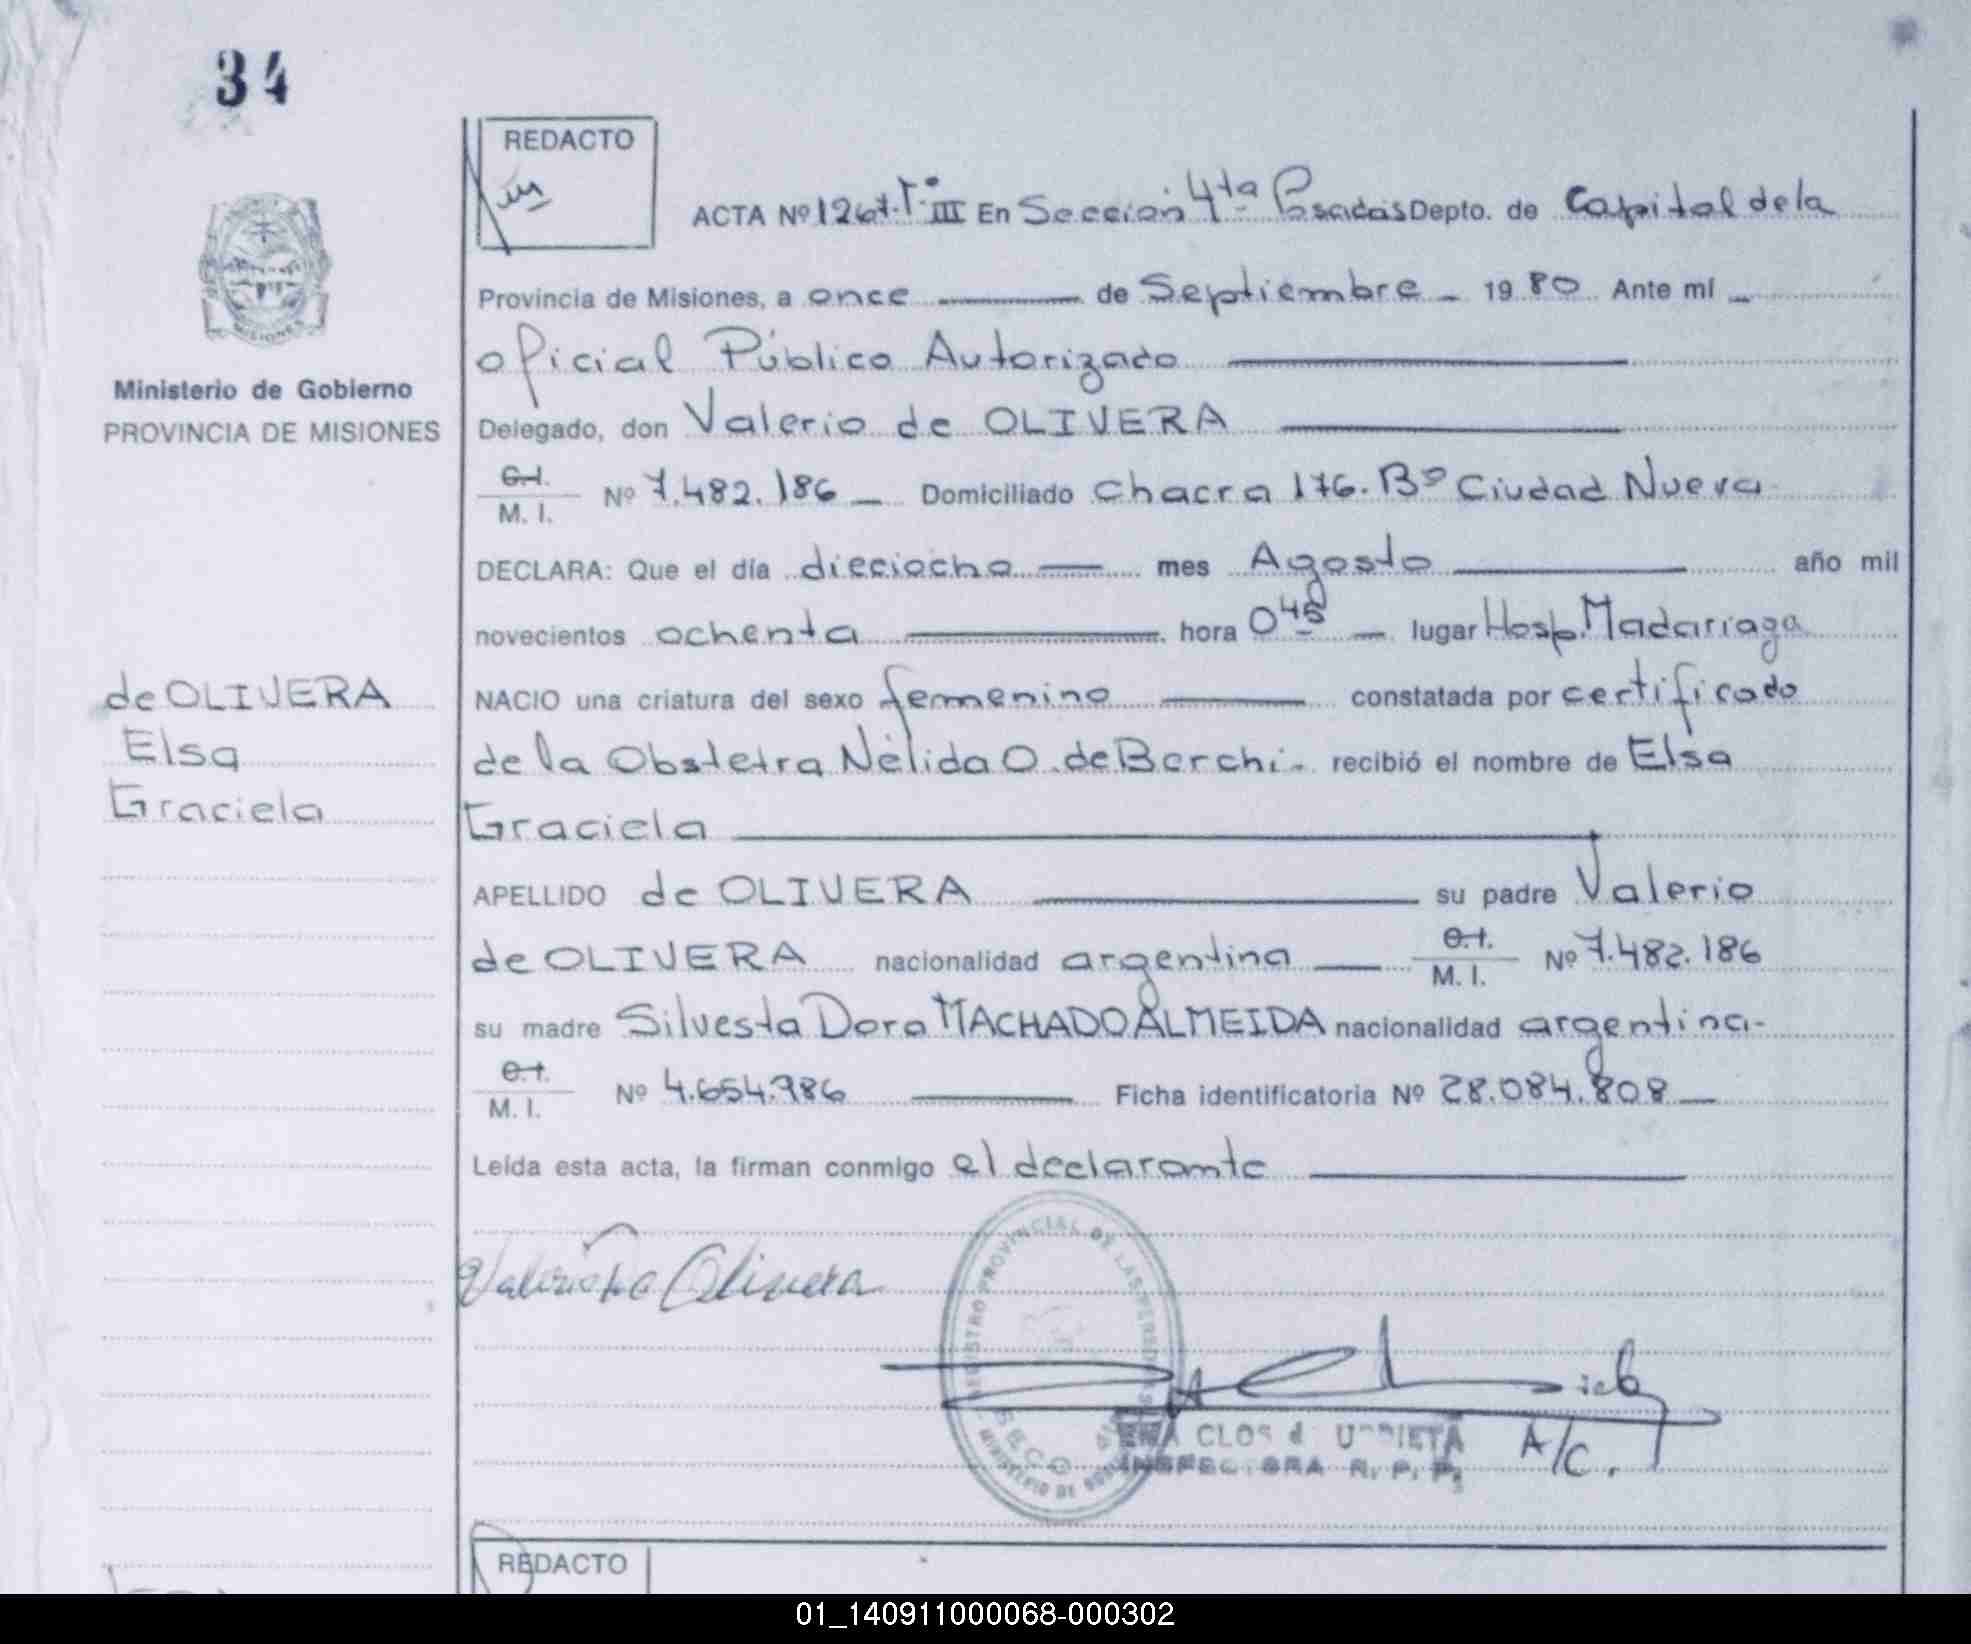 34
REDACTO
ACTA Nº 1267. Tº III En Sección 4ta Posadas Depto. de Capital de la
Provincia de Misiones, a once de Septiembre 1980 Ante mí
oficial Público Autorizado
Ministerio de Gobierno
PROVINCIA DE MISIONES
Delegado, don Valerio de OLIVERA
C.I.
M. I. Nº 7.482.186 Domiciliado Chacra 176. Bº Ciudad Nueva
DECLARA: Que el día dieciocho mes Agosto año mil
novecientos ochenta hora 0 45 lugar Hosp. Madariaga
de OLIVERA
Elsa
Graciela
NACIO una criatura del sexo femenino constatada por certificado
de la Obstetra Nélida O. de Berchi - recibió el nombre de Elsa
Graciela
APELLIDO de OLIVERA su padre Valerio
de OLIVERA nacionalidad argentina C.I. M. I. Nº 7.482.186
su madre Silvesta Dora MACHADO ALMEIDA nacionalidad argentina-
C.I.
M. I. Nº 4.654.986 Ficha identificatoria Nº 28.084.808
Leída esta acta, la firman conmigo el declarante
Valerio De Olivera
REGISTRO PROVINCIAL DE LAS PERSONAS
INSPECTORA R. P. P.
A/C.
REDACTO
01_140911000068-000302